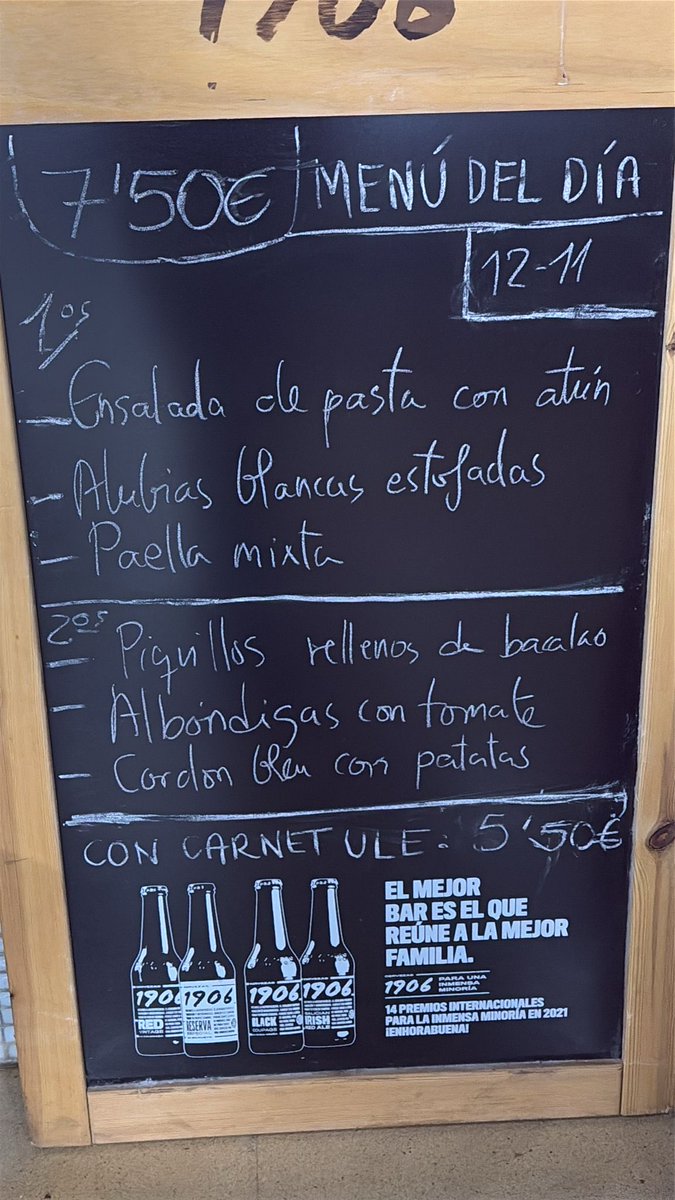 1906
7'50€ MENÚ DEL DÍA
12-11
1os
- Ensalada de pasta con atún
- Alubias blancas estofadas
- Paella mixta
2os
- Piquillos rellenos de bacalao
- Albóndigas con tomate
- Cordon bleu con patatas
CON CARNET ULE: 5'50€
EL MEJOR
BAR ES EL QUE
REÚNE A LA MEJOR
FAMILIA.
CERVEZAS
1906
PARA UNA
INMENSA
MINORÍA
14 PREMIOS INTERNACIONALES
PARA LA INMENSA MINORÍA EN 2021
¡ENHORABUENA!
1906
RED
VINTAGE
1906
RESERVA
ESPECIAL
1906
BLACK
COUPAGE
1906
IRISH
RED ALE